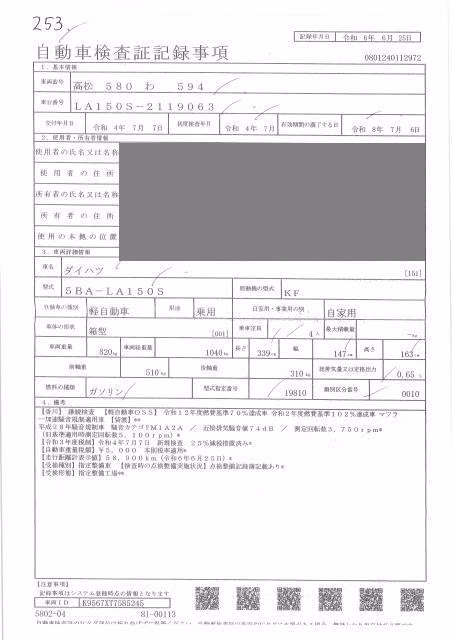 253.
記録年月日 令和 6年 6月 25日
自動車検査証記録事項
0801240112972
1. 基本情報
車両番号 高松 580 わ 594
車台番号 LA150S-2119063
交付年月日 令和 4年 7月 7日 初度検査年月 令和 4年 7月 有効期間の満了する日 令和 8年 7月 6日
2. 使用者・所有者情報
使用者の氏名又は名称
使用者の住所
所有者の氏名又は名称
所有者の住所
使用の本拠の位置
3. 車両詳細情報
車名 ダイハツ [151]
型式 5BA-LA150S 原動機の型式 KF
自動車の種別 軽自動車 用途 乗用 自家用・事業用の別 自家用
車体の形状 箱型 [001] 乗車定員 4人 最大積載量 -kg
車両重量 820kg 車両総重量 1040kg 長さ 339cm 幅 147cm 高さ 163cm
前軸重 510kg 後軸重 310kg 総排気量又は定格出力 0.65L
燃料の種類 ガソリン 型式指定番号 19810 類別区分番号 0010
4. 備考
[香川] 継続検査 【軽自動車OSS】 令和12年度燃費基準70%達成車 令和2年度燃費基準102%達成車 マフラ
ー加速騒音規制適用車 【貸渡】**
平成28年騒音規制車 騒音カテゴリM1A2A / 近接排気騒音値74dB / 測定回転数3,750rpm*
(旧基準適用時測定回転数5,100rpm)*
【令和3年度税制】令和4年7月7日 新規検査 25%減税措置済み*
【自動車重量税額】¥5,000 本則税率適用*
【走行距離計表示値】58,900km(令和6年6月25日)*
【受検種別】指定整備車 【検査時の点検整備実施状況】点検整備記録簿記載あり*
【受検形態】指定整備工場**
[注意事項]
記録事項はシステム登録時点の情報となります
車両ID K9567XT7585245
5802-04 81-00113